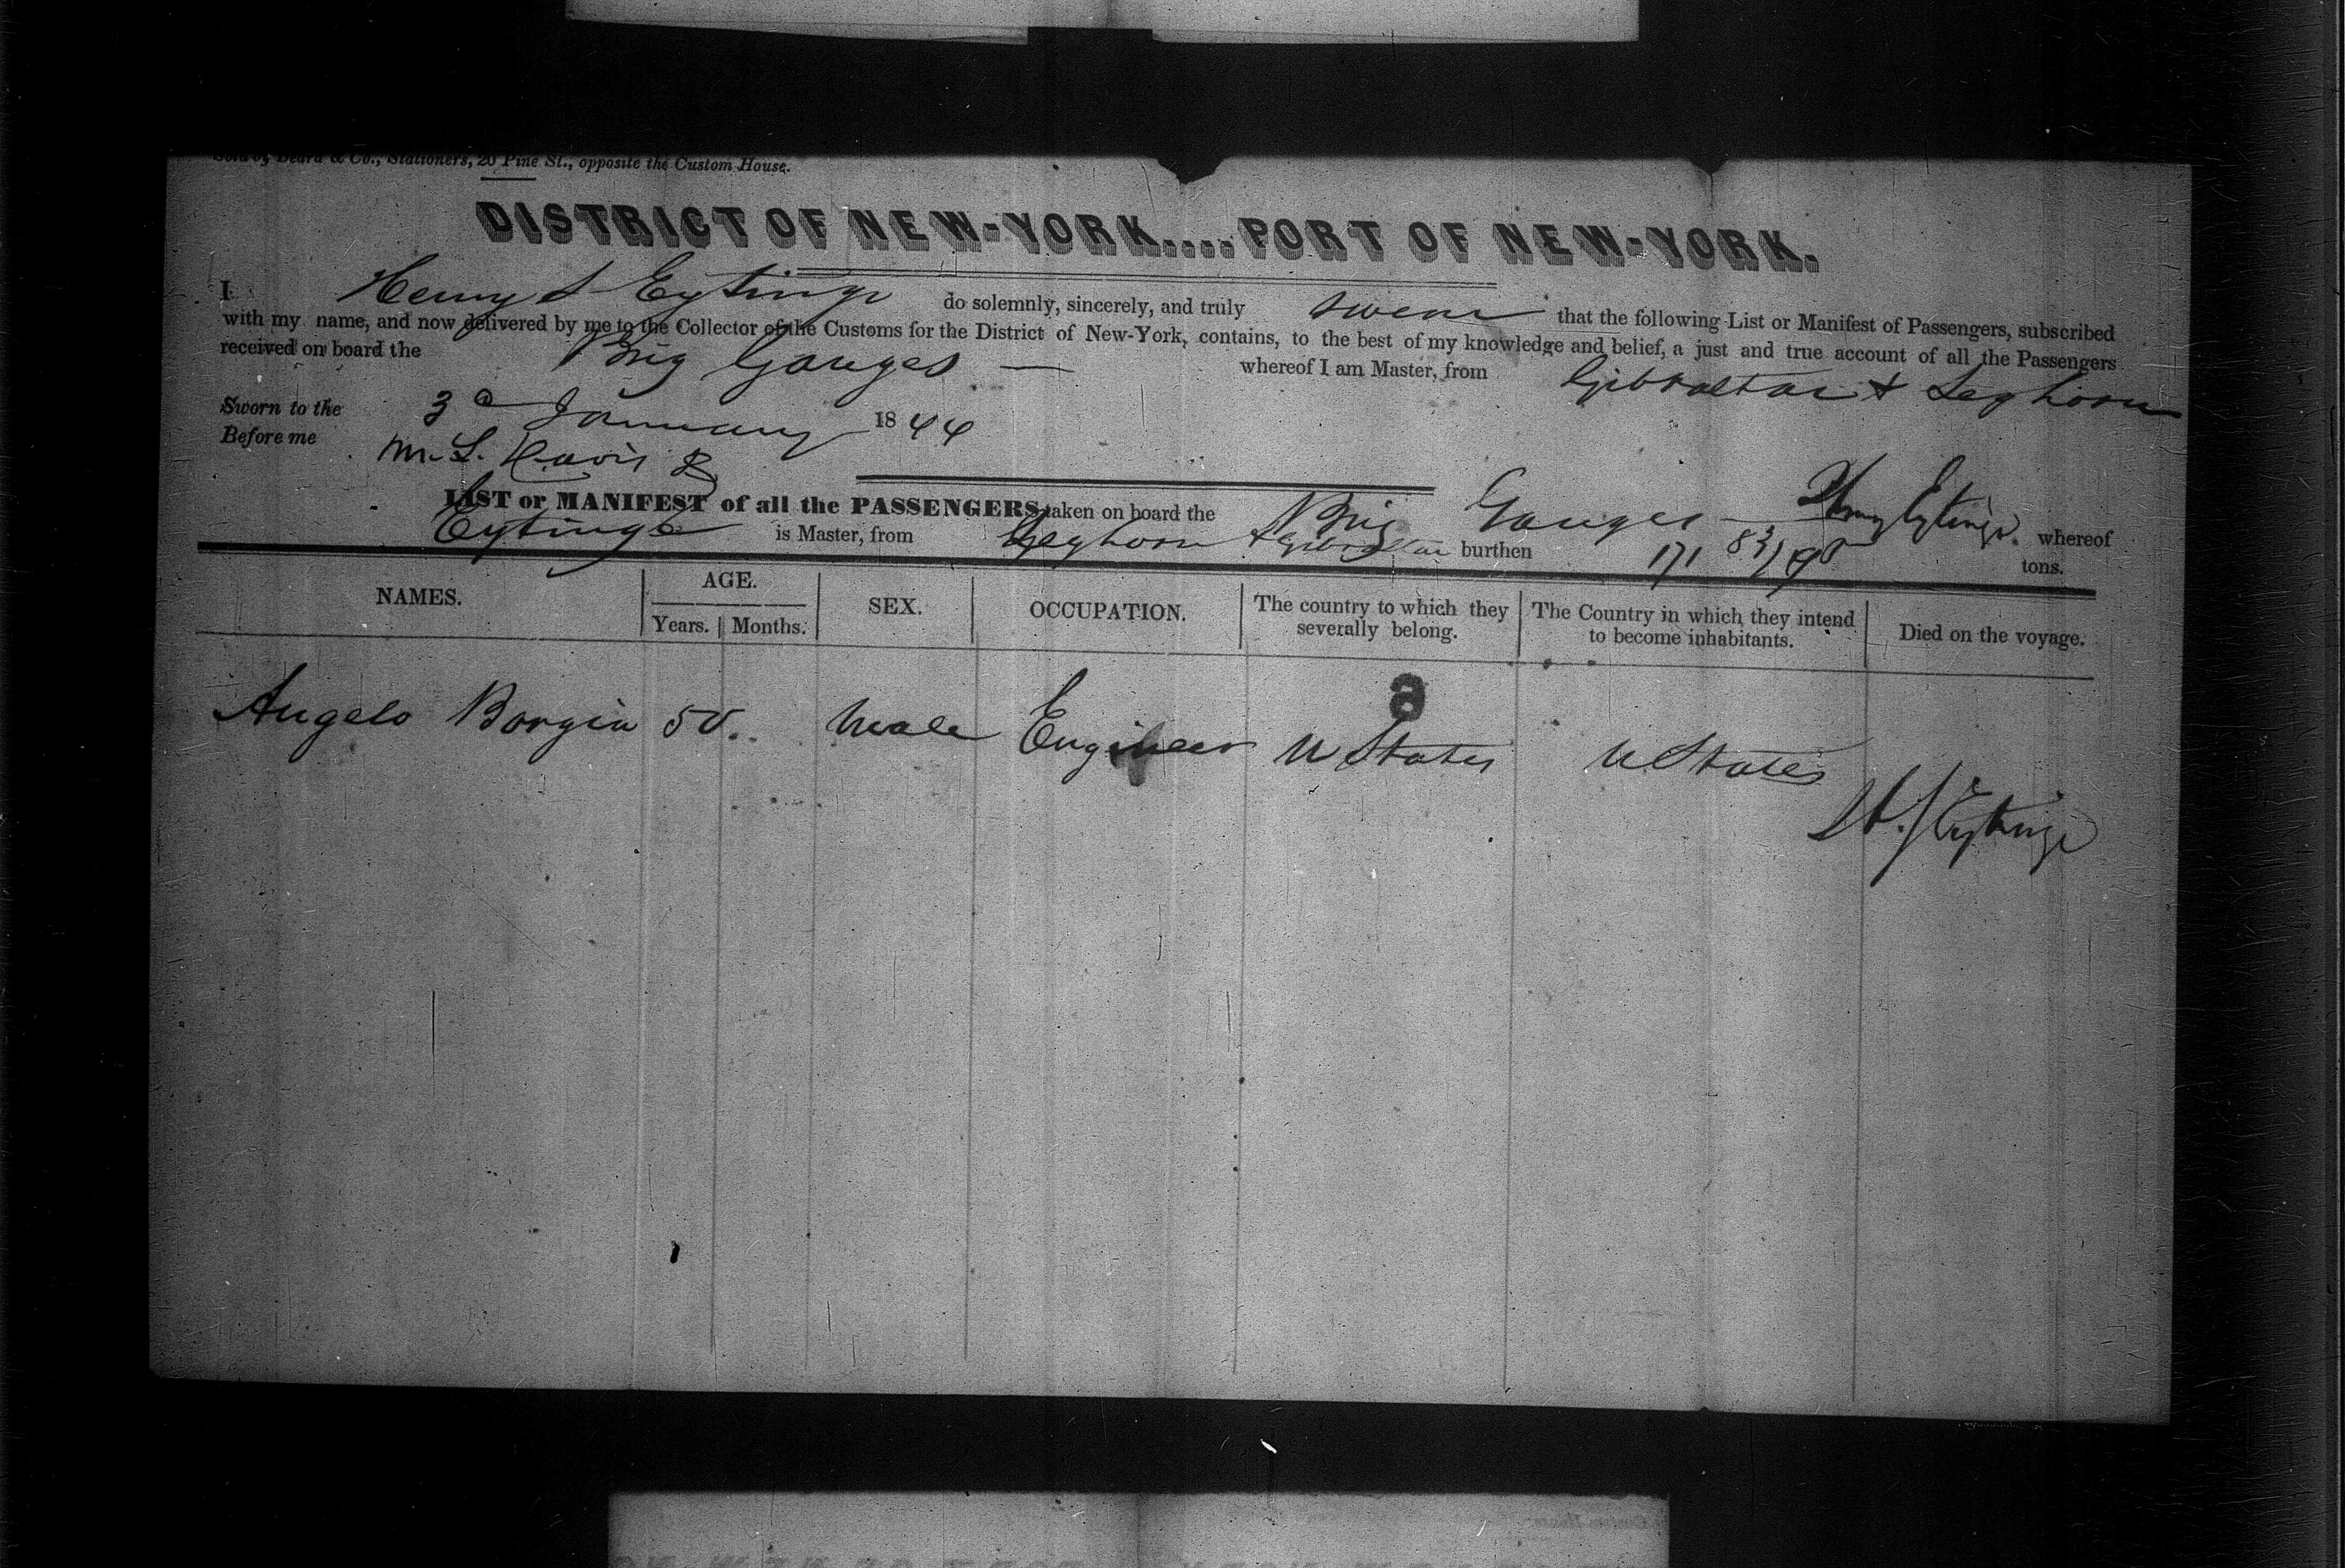 Sold by Beard & Co., Stationers, 20 Pine St., opposite the Custom House.
DISTRICT OF NEW-YORK....PORT OF NEW-YORK.
I Henry S Eytinge do solemnly, sincerely, and truly swear that the following List or Manifest of Passengers, subscribed
with my name, and now delivered by me to the Collector of the Customs for the District of New-York, contains, to the best of my knowledge and belief, a just and true account of all the Passengers
received on board the Brig Ganges — whereof I am Master, from Gibraltar & Leghorn
Sworn to the 3d January 1844
Before me M. L. Davis
Henry Eytinge
LIST or MANIFEST of all the PASSENGERS taken on board the Brig Ganges whereof
Eytinge is Master, from Leghorn & Gibraltar burthen 171 83/90 tons.
NAMES. AGE. SEX. OCCUPATION. The country to which they severally belong. The Country in which they intend to become inhabitants. Died on the voyage.
Years. Months.
a
Angelo Borgia 50 Male Engineer U States U States
H. S Eytinge